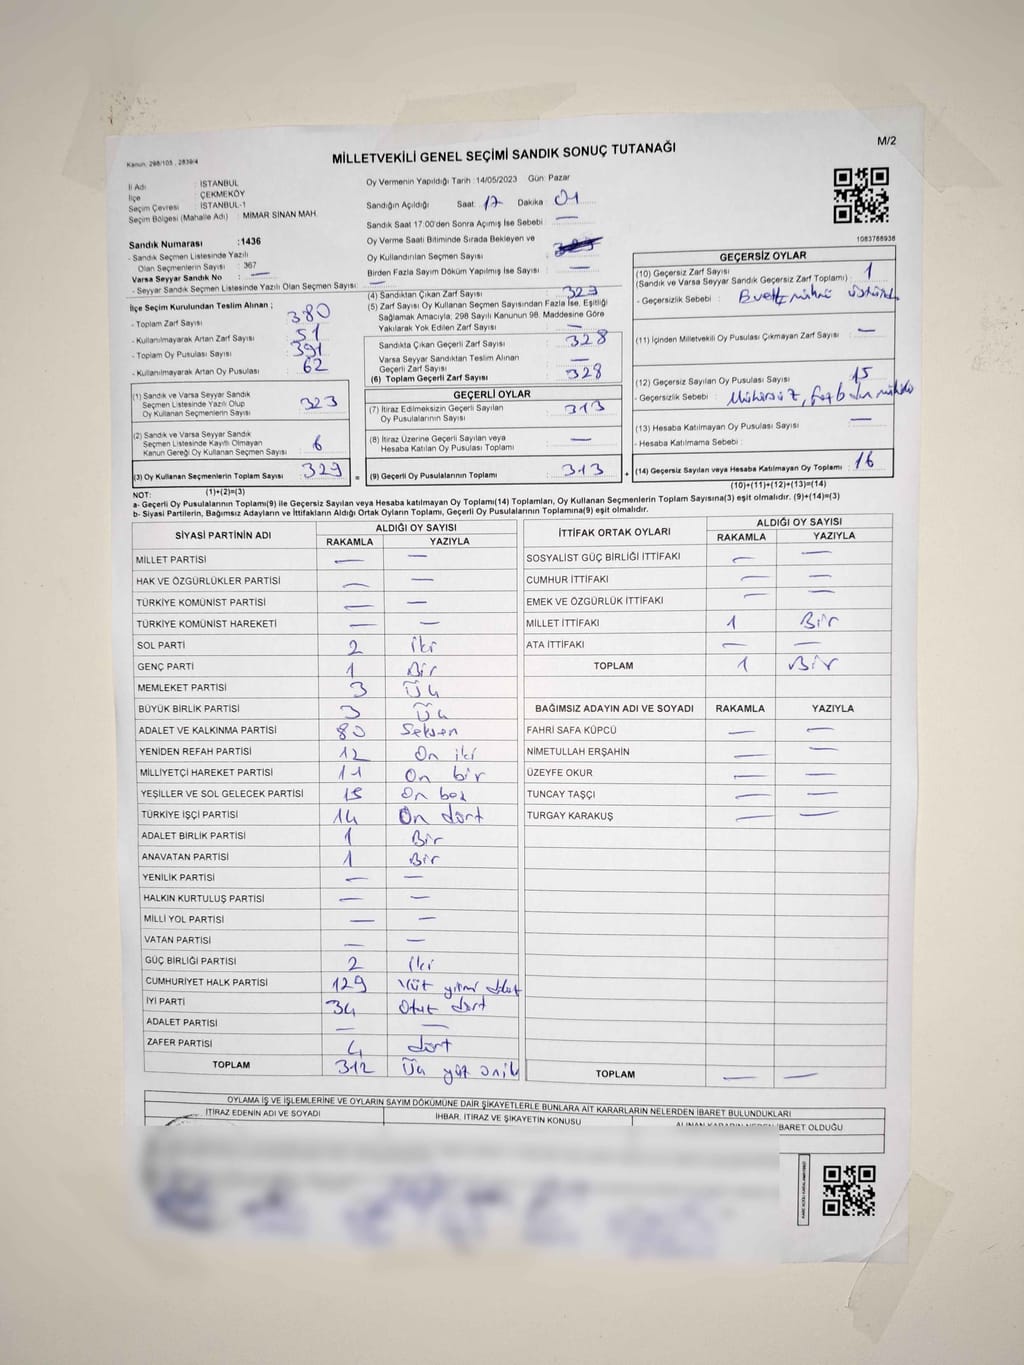 M/2
Kanun: 298/103 , 2839/4
MİLLETVEKİLİ GENEL SEÇİMİ SANDIK SONUÇ TUTANAĞI
İl Adı : İSTANBUL
İlçe : ÇEKMEKÖY
Seçim Çevresi : İSTANBUL-1
Seçim Bölgesi (Mahalle Adı) : MİMAR SİNAN MAH.
Sandık Numarası :1436
- Sandık Seçmen Listesinde Yazılı
Olan Seçmenlerin Sayısı : 367
Varsa Seyyar Sandık No : —
- Seyyar Sandık Seçmen Listesinde Yazılı Olan Seçmen Sayısı: —
İlçe Seçim Kurulundan Teslim Alınan ;
- Toplam Zarf Sayısı : 380
- Kullanılmayarak Artan Zarf Sayısı : 51
- Toplam Oy Pusulası Sayısı : 391
- Kullanılmayarak Artan Oy Pusulası : 62
(1) Sandık ve Varsa Seyyar Sandık
Seçmen Listesinde Yazılı Olup
Oy Kullanan Seçmenlerin Sayısı : 323
(2) Sandık ve Varsa Seyyar Sandık
Seçmen Listesinde Kayıtlı Olmayan
Kanun Gereği Oy Kullanan Seçmen Sayısı : 6
(3) Oy Kullanan Seçmenlerin Toplam Sayısı : 329
(1)+(2)=(3)
Oy Vermenin Yapıldığı Tarih :14/05/2023 Gün: Pazar
Sandığın Açıldığı Saat: 17 Dakika: 01
Sandık Saat 17:00'den Sonra Açımış İse Sebebi : —
Oy Verme Saati Bitiminde Sırada Bekleyen ve
Oy Kullandırılan Seçmen Sayısı :
Birden Fazla Sayım Döküm Yapılmış İse Sayısı : —
(4) Sandıktan Çıkan Zarf Sayısı : 323
(5) Zarf Sayısı Oy Kullanan Seçmen Sayısından Fazla İse, Eşitliği
Sağlamak Amacıyla, 298 Sayılı Kanunun 98. Maddesine Göre
Yakılarak Yok Edilen Zarf Sayısı : —
Sandıkta Çıkan Geçerli Zarf Sayısı : 328
Varsa Seyyar Sandıktan Teslim Alınan
Geçerli Zarf Sayısı : —
(6) Toplam Geçerli Zarf Sayısı : 328
GEÇERLİ OYLAR
(7) İtiraz Edilmeksizin Geçerli Sayılan
Oy Pusulalarının Sayısı : 313
(8) İtiraz Üzerine Geçerli Sayılan veya
Hesaba Katılan Oy Pusulası Sayısı : —
= (9) Geçerli Oy Pusulalarının Toplamı : 313 +
1083766936
GEÇERSİZ OYLAR
(10) Geçersiz Zarf Sayısı
(Sandık ve Varsa Seyyar Sandık Geçersiz Zarf Toplamı) : 1
- Geçersizlik Sebebi :
(11) İçinden Milletvekili Oy Pusulası Çıkmayan Zarf Sayısı : —
(12) Geçersiz Sayılan Oy Pusulası Sayısı : 15
- Geçersizlik Sebebi : Mühürsüz,
(13) Hesaba Katılmayan Oy Pusulası Sayısı : —
- Hesaba Katılmama Sebebi :
(14) Geçersiz Sayılan veya Hesaba Katılmayan Oy Toplamı : 16
(10)+(11)+(12)+(13)=(14)
NOT:
a- Geçerli Oy Pusulalarının Toplamı(9) ile Geçersiz Sayılan veya Hesaba katılmayan Oy Toplamı(14) Toplamları, Oy Kullanan Seçmenlerin Toplam Sayısına(3) eşit olmalıdır. (9)+(14)=(3)
b- Siyasi Partilerin, Bağımsız Adayların ve İttifakların Aldığı Ortak Oyların Toplamı, Geçerli Oy Pusulalarının Toplamına(9) eşit olmalıdır.
SİYASİ PARTİNİN ADI ALDIĞI OY SAYISI
RAKAMLA YAZIYLA
MİLLET PARTİSİ — —
HAK VE ÖZGÜRLÜKLER PARTİSİ — —
TÜRKİYE KOMÜNİST PARTİSİ — —
TÜRKİYE KOMÜNİST HAREKETİ — —
SOL PARTİ 2 iki
GENÇ PARTİ 1 Bir
MEMLEKET PARTİSİ 3 Üç
BÜYÜK BİRLİK PARTİSİ 3 Üç
ADALET VE KALKINMA PARTİSİ 80 Seksen
YENİDEN REFAH PARTİSİ 12 On iki
MİLLİYETÇİ HAREKET PARTİSİ 11 On bir
YEŞİLLER VE SOL GELECEK PARTİSİ 15 On beş
TÜRKİYE İŞÇİ PARTİSİ 14 On dört
ADALET BİRLİK PARTİSİ 1 Bir
ANAVATAN PARTİSİ 1 Bir
YENİLİK PARTİSİ — —
HALKIN KURTULUŞ PARTİSİ — —
MİLLİ YOL PARTİSİ — —
VATAN PARTİSİ — —
GÜÇ BİRLİĞİ PARTİSİ 2 iki
CUMHURİYET HALK PARTİSİ 129 Yüz yirmi
İYİ PARTİ 34 Otuz dört
ADALET PARTİSİ — —
ZAFER PARTİSİ 4 dört
TOPLAM 312 Üç yüz oniki
İTTİFAK ORTAK OYLARI ALDIĞI OY SAYISI
RAKAMLA YAZIYLA
SOSYALİST GÜÇ BİRLİĞİ İTTİFAKI — —
CUMHUR İTTİFAKI — —
EMEK VE ÖZGÜRLÜK İTTİFAKI — —
MİLLET İTTİFAKI 1 Bir
ATA İTTİFAKI — —
TOPLAM 1 Bir
BAĞIMSIZ ADAYIN ADI VE SOYADI RAKAMLA YAZIYLA
FAHRİ SAFA KÜPCÜ — —
NİMETULLAH ERŞAHİN — —
ÜZEYFE OKUR — —
TUNCAY TAŞÇI — —
TURGAY KARAKUŞ — —
TOPLAM — —
OYLAMA İŞ VE İŞLEMLERİNE VE OYLARIN SAYIM DÖKÜMÜNE DAİR ŞİKAYETLERLE BUNLARA AİT KARARLARIN NELERDEN İBARET BULUNDUKLARI
İTİRAZ EDENİN ADI VE SOYADI İHBAR, İTİRAZ VE ŞİKAYETİN KONUSU İBARET OLDUĞU